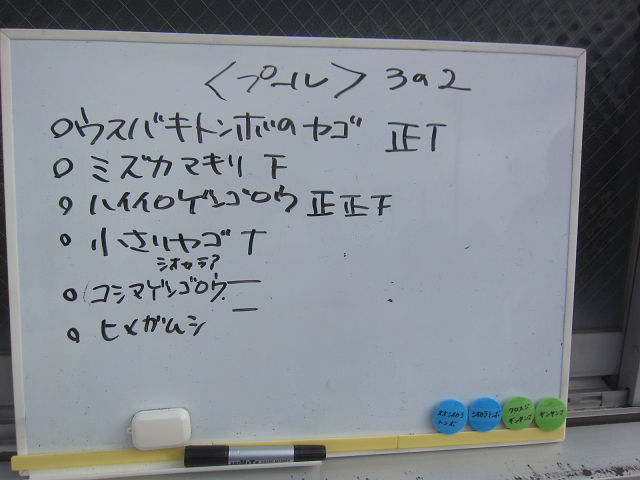 〈プール〉 3の2
○ウスバキトンボのヤゴ 正T
○ミズカマキリ 下
○ハイイロゲンゴロウ 正正下
○小さいヤゴ T
シオカラ?
○コシマゲンゴロウ 二
○ヒメガムシ
オオシオカラトンボ
シオカラトンボ
クロスジギンヤンマ
ギンヤンマ